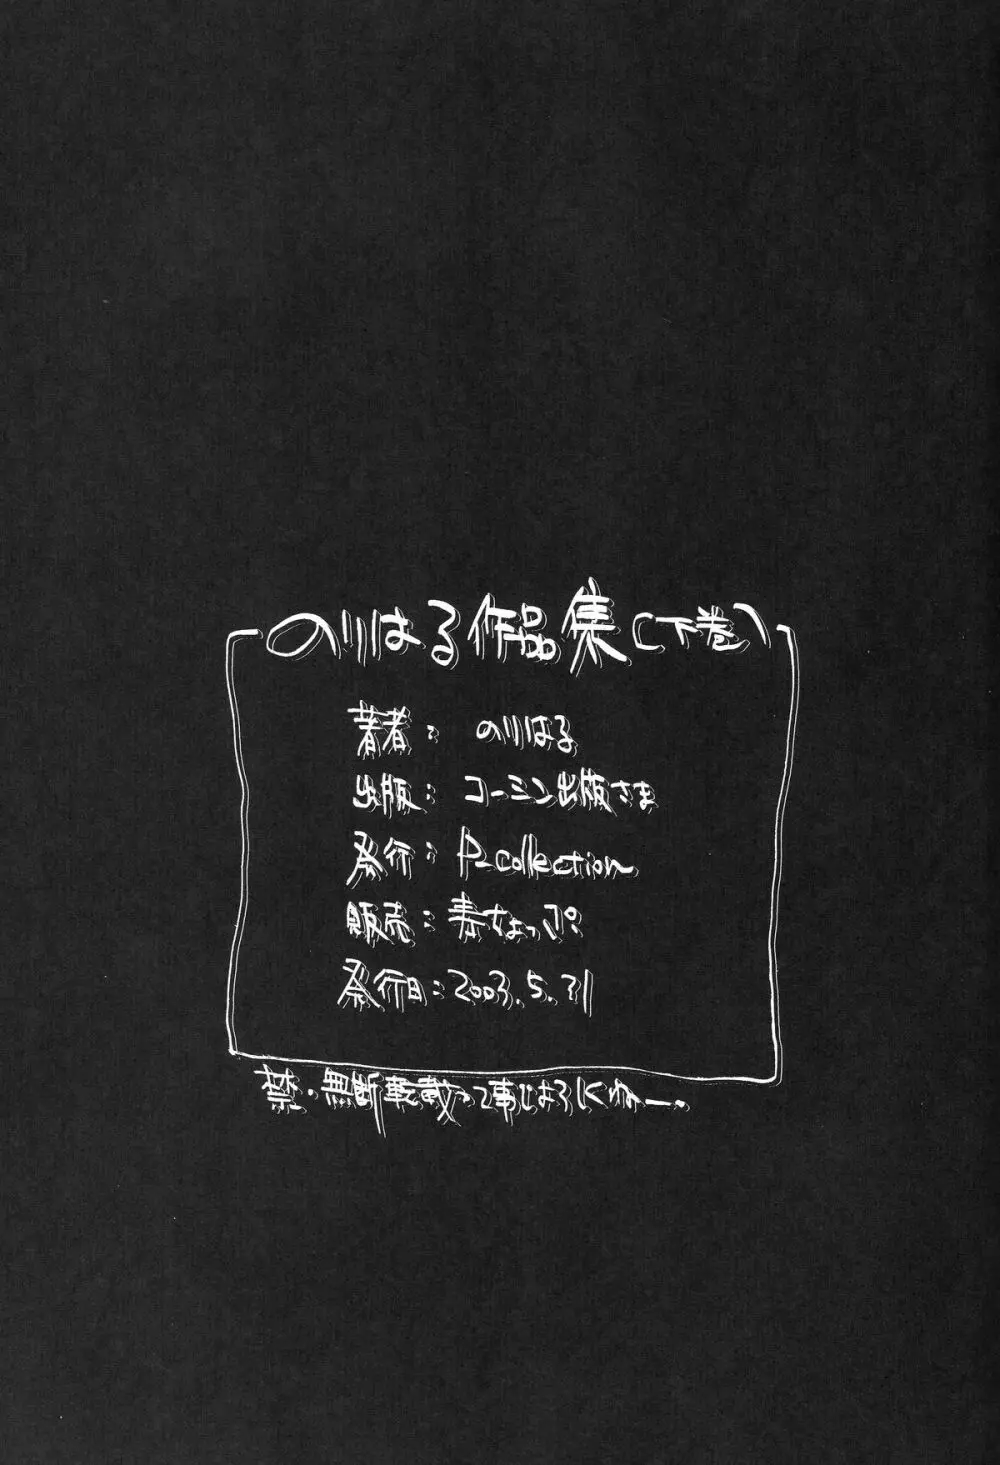 のりはる作品集(下巻)
著者： のりはる
出版： コーミン出版さま
発行： P-collection
販売： 毒ちょっぷ
発行日：2003.5.31
禁・無断転載って事でよろしくねー。